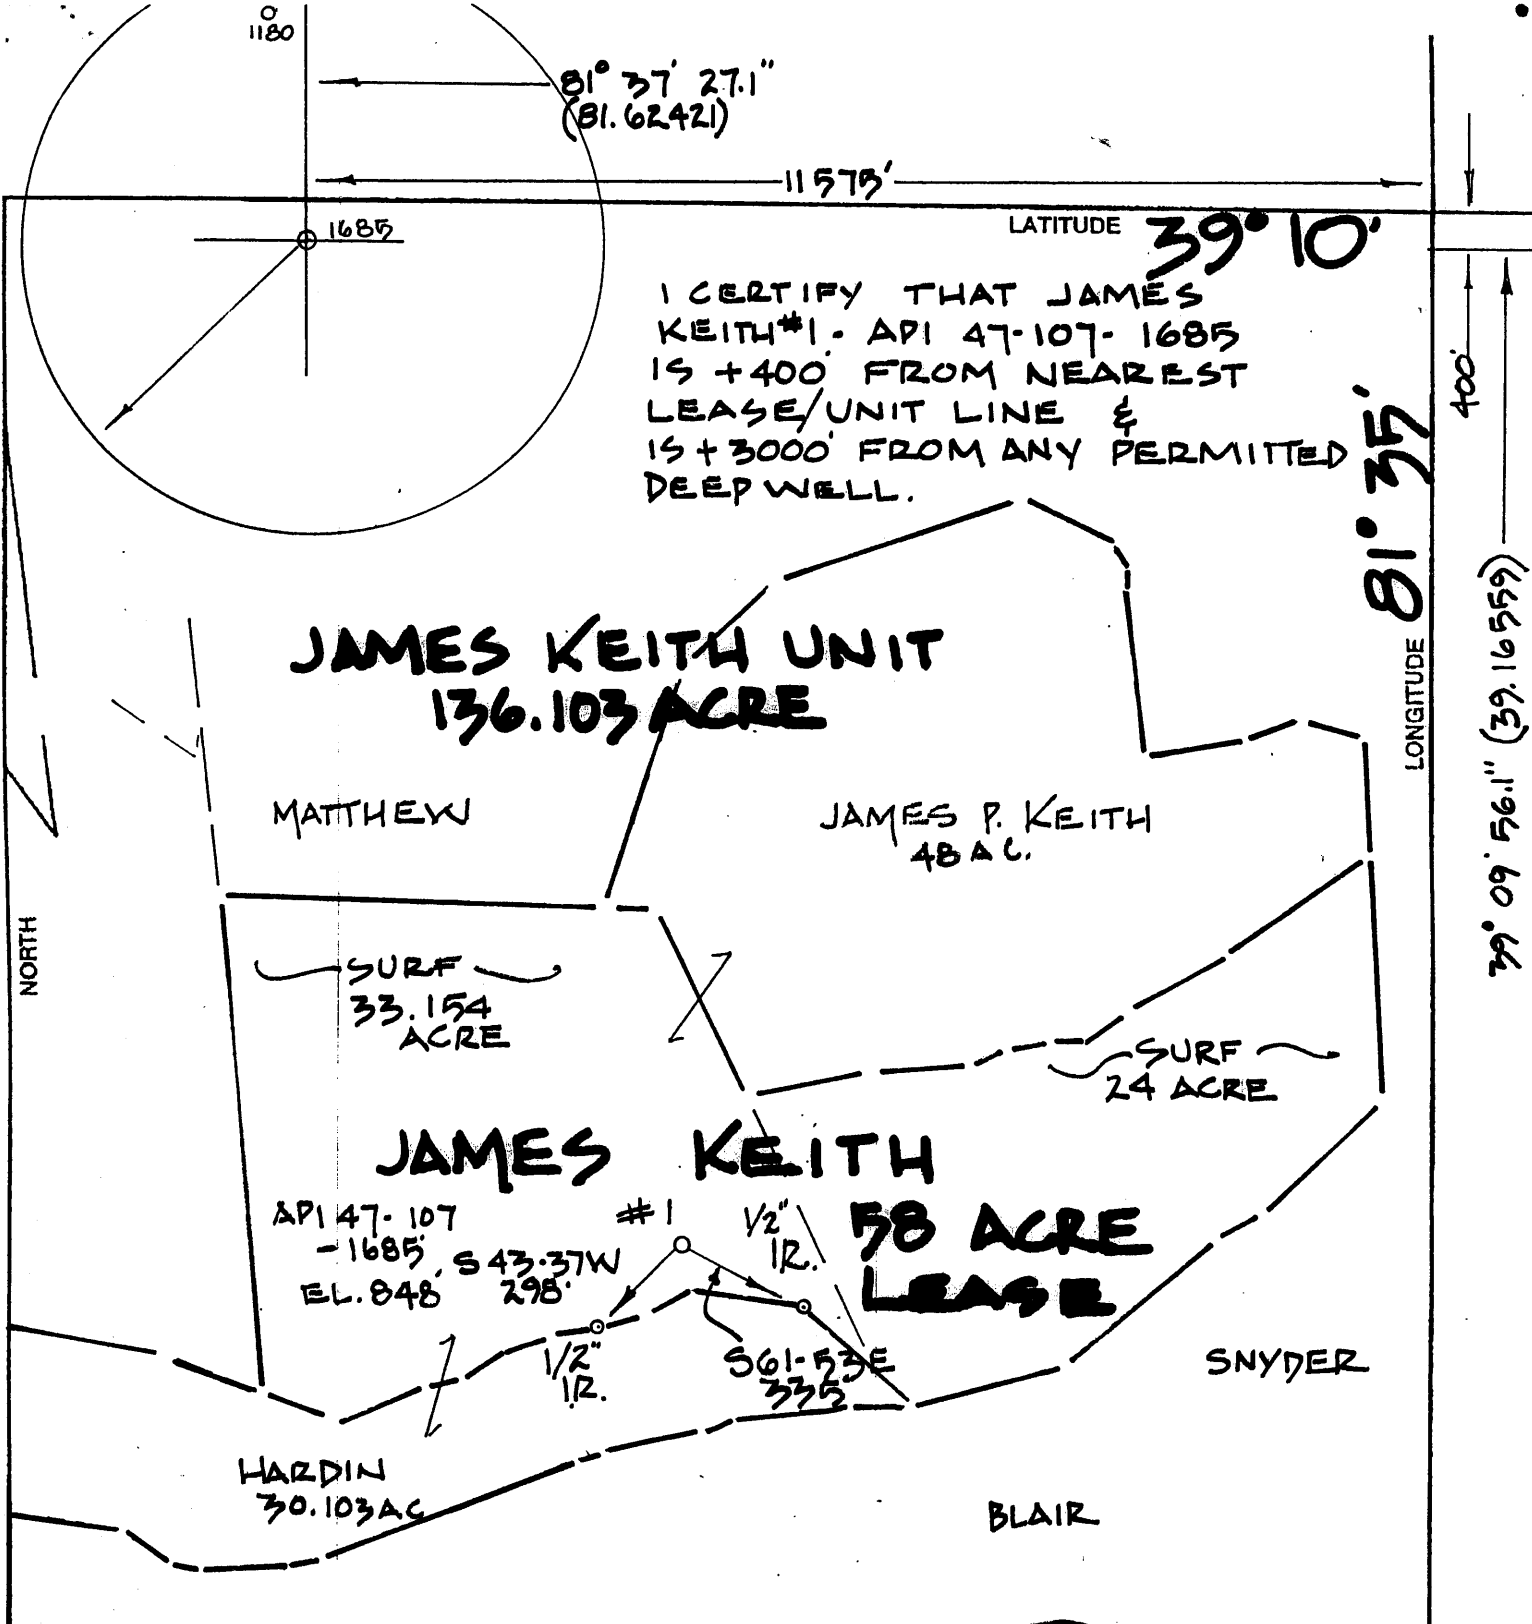 1180
81° 37' 27.1"
(81.62421)
11575'
1685
LATITUDE 39° 10'
I CERTIFY THAT JAMES
KEITH #1 - API 47-107-1685
IS +400' FROM NEAREST
LEASE/UNIT LINE &
IS +3000' FROM ANY PERMITTED
DEEP WELL.
400'
LONGITUDE 81° 35'
39° 09' 56.1" (39.16559)
JAMES KEITH UNIT
136.103 ACRE
MATTHEW
JAMES P. KEITH
48 AC.
NORTH
SURF
33.154
ACRE
SURF
24 ACRE
JAMES KEITH
58 ACRE
LEASE
API 47-107
-1685
EL. 848'
#1
S 43-37W
298'
1/2"
IR.
1/2"
IR.
S61-53E
335'
SNYDER
HARDIN
30.103 AC
BLAIR